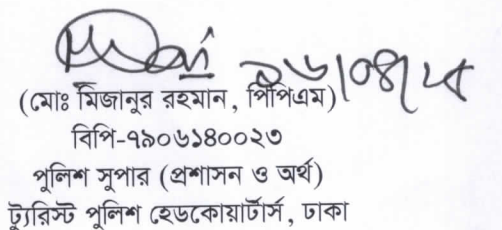 ২৬/০৪/২৫
(মোঃ মিজানুর রহমান, পিপিএম)
বিপি-৭৯০৬১৪০০২৩
পুলিশ সুপার (প্রশাসন ও অর্থ)
ট্যুরিস্ট পুলিশ হেডকোয়ার্টার্স, ঢাকা